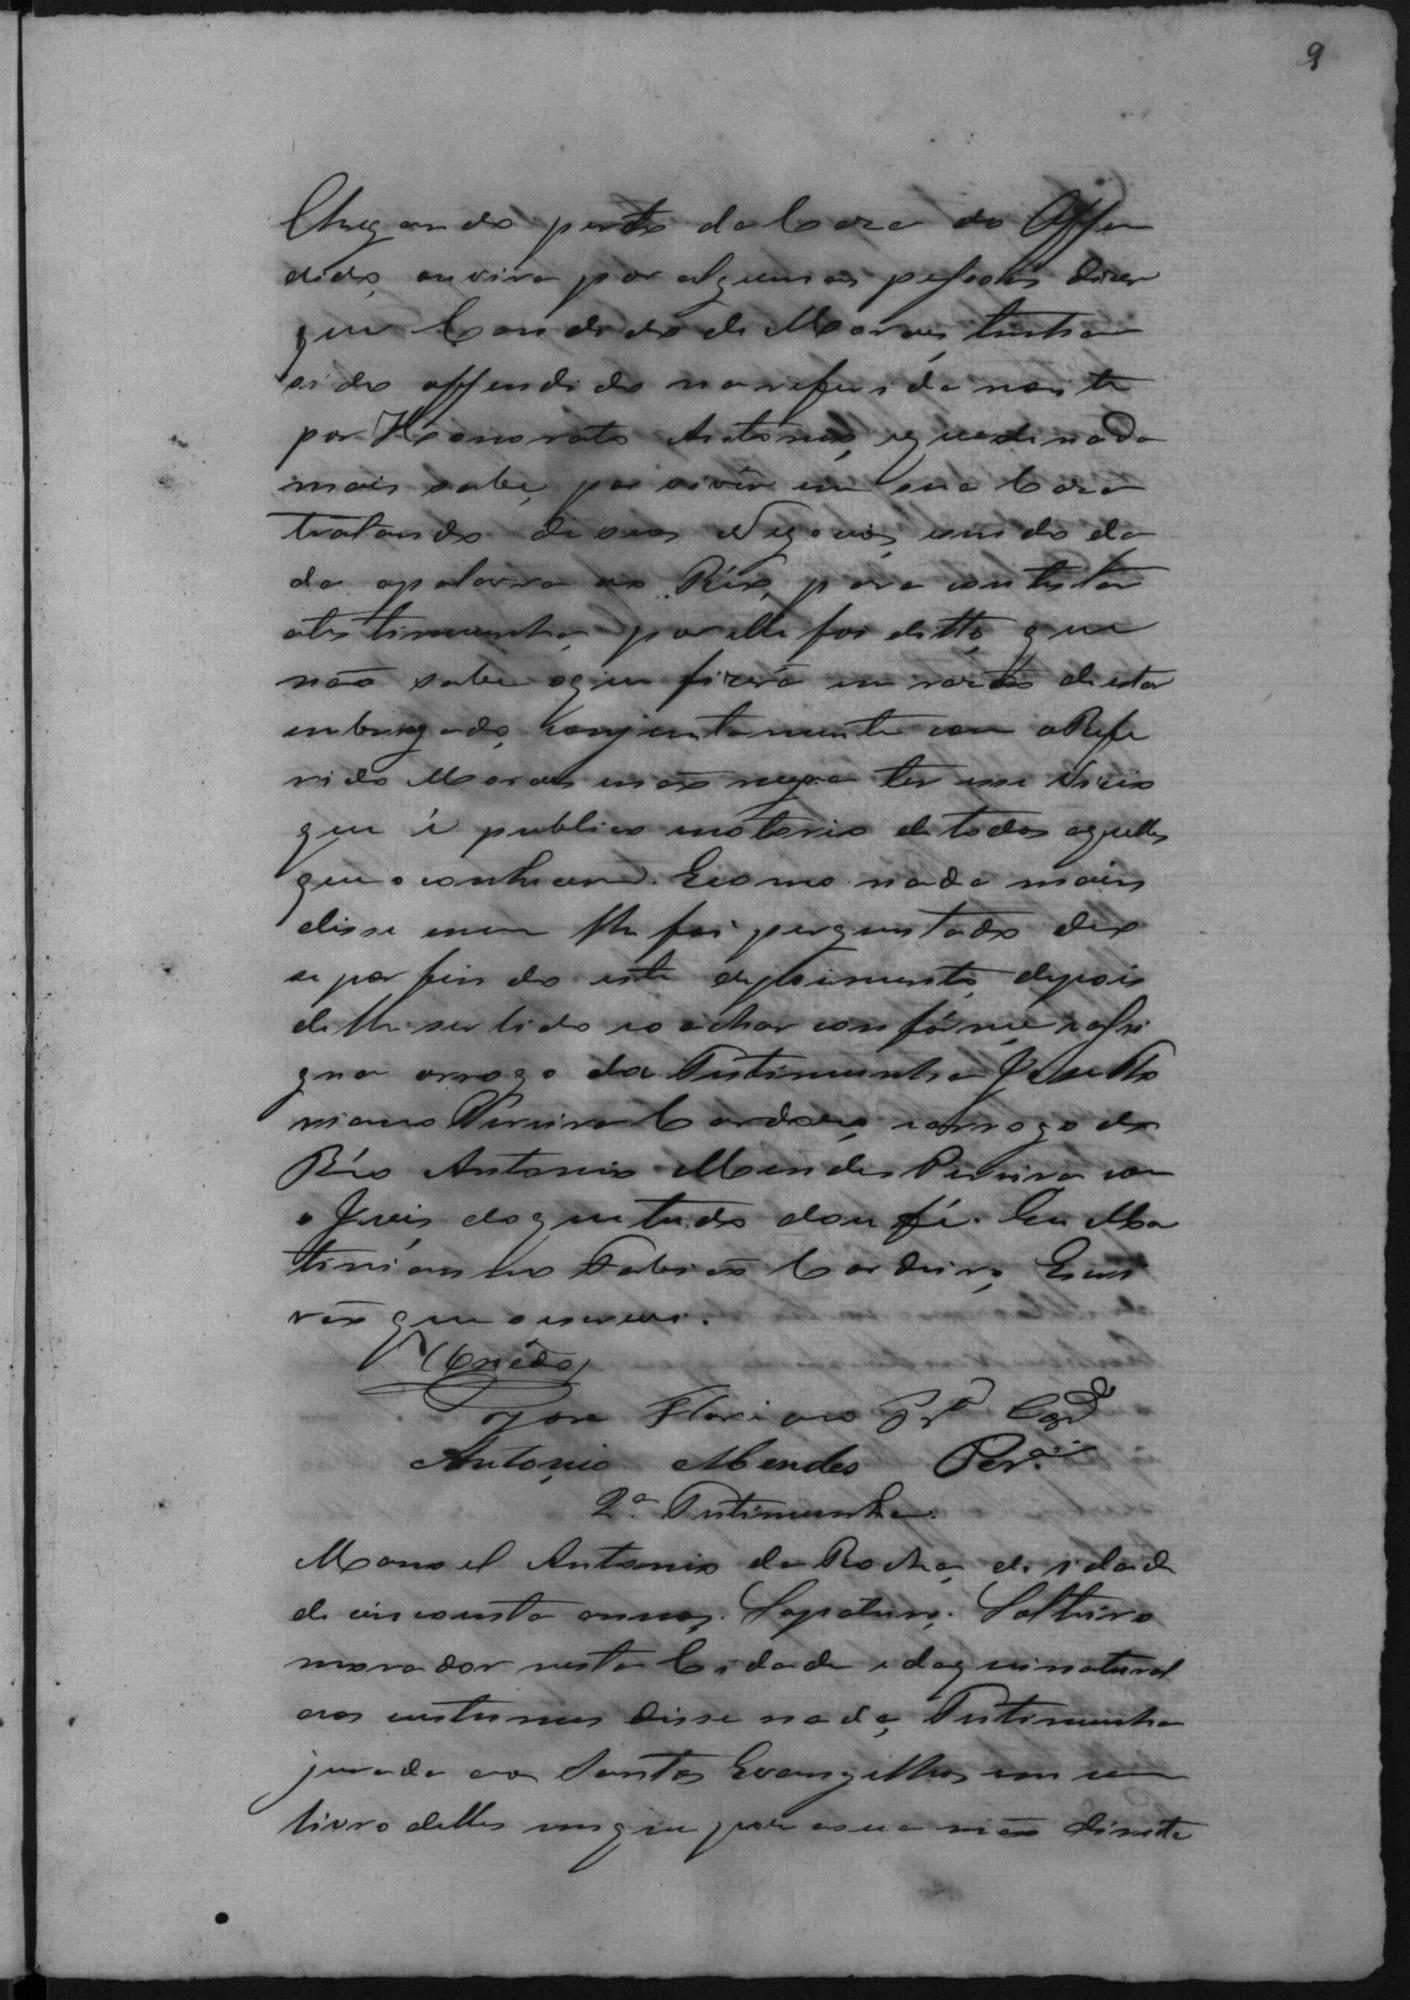 9
Chegando perto da Caza do Offen
dido, ouvira por algumas pessoas dizer
que Candido de Moraes, tinha
sido offendido na referida noite
por Honorato Antonio, e que de nada
mais sabe, por viver em sua Caza
tratando de seus Negocios, sendo da
da apalavra ao Réo, para contestar
atestimunha, por elle foi ditto, que
não sabe oque fizera em razão de estar
embriagado, conjuntamente com o Refe
rido Moraes e não nega ter esse vicio
que é publico e notorio de todos aquelles
que o conhecem. E como nada mais
disse e nem lhe foi perguntado deu
se por findo este depoimento, depois
de lhe ser lido e o achar conforme, e assi
gna arrogo da Testimunha José Flo
riano Pereira Cardozo, e arrogo do
Réo Antonio Mendes Pereira com
o Juis, do que tudo dou fé. Eu Ma
tiniano Fabião Cordeiro, Escri
vão que o escrevi.
José Floriano Prª Cardº
Antonio Mendes Perª
2ª Testimunha
Manoel Antonio da Rocha, de idade
de cincoenta annos. Sapateiro. Solteiro
morador nesta Cidade e daqui natural
aos custumes disse nada, Testimunha
jurada aos Santos Evangelhos em um
livro delles em que pôz a sua mão direita